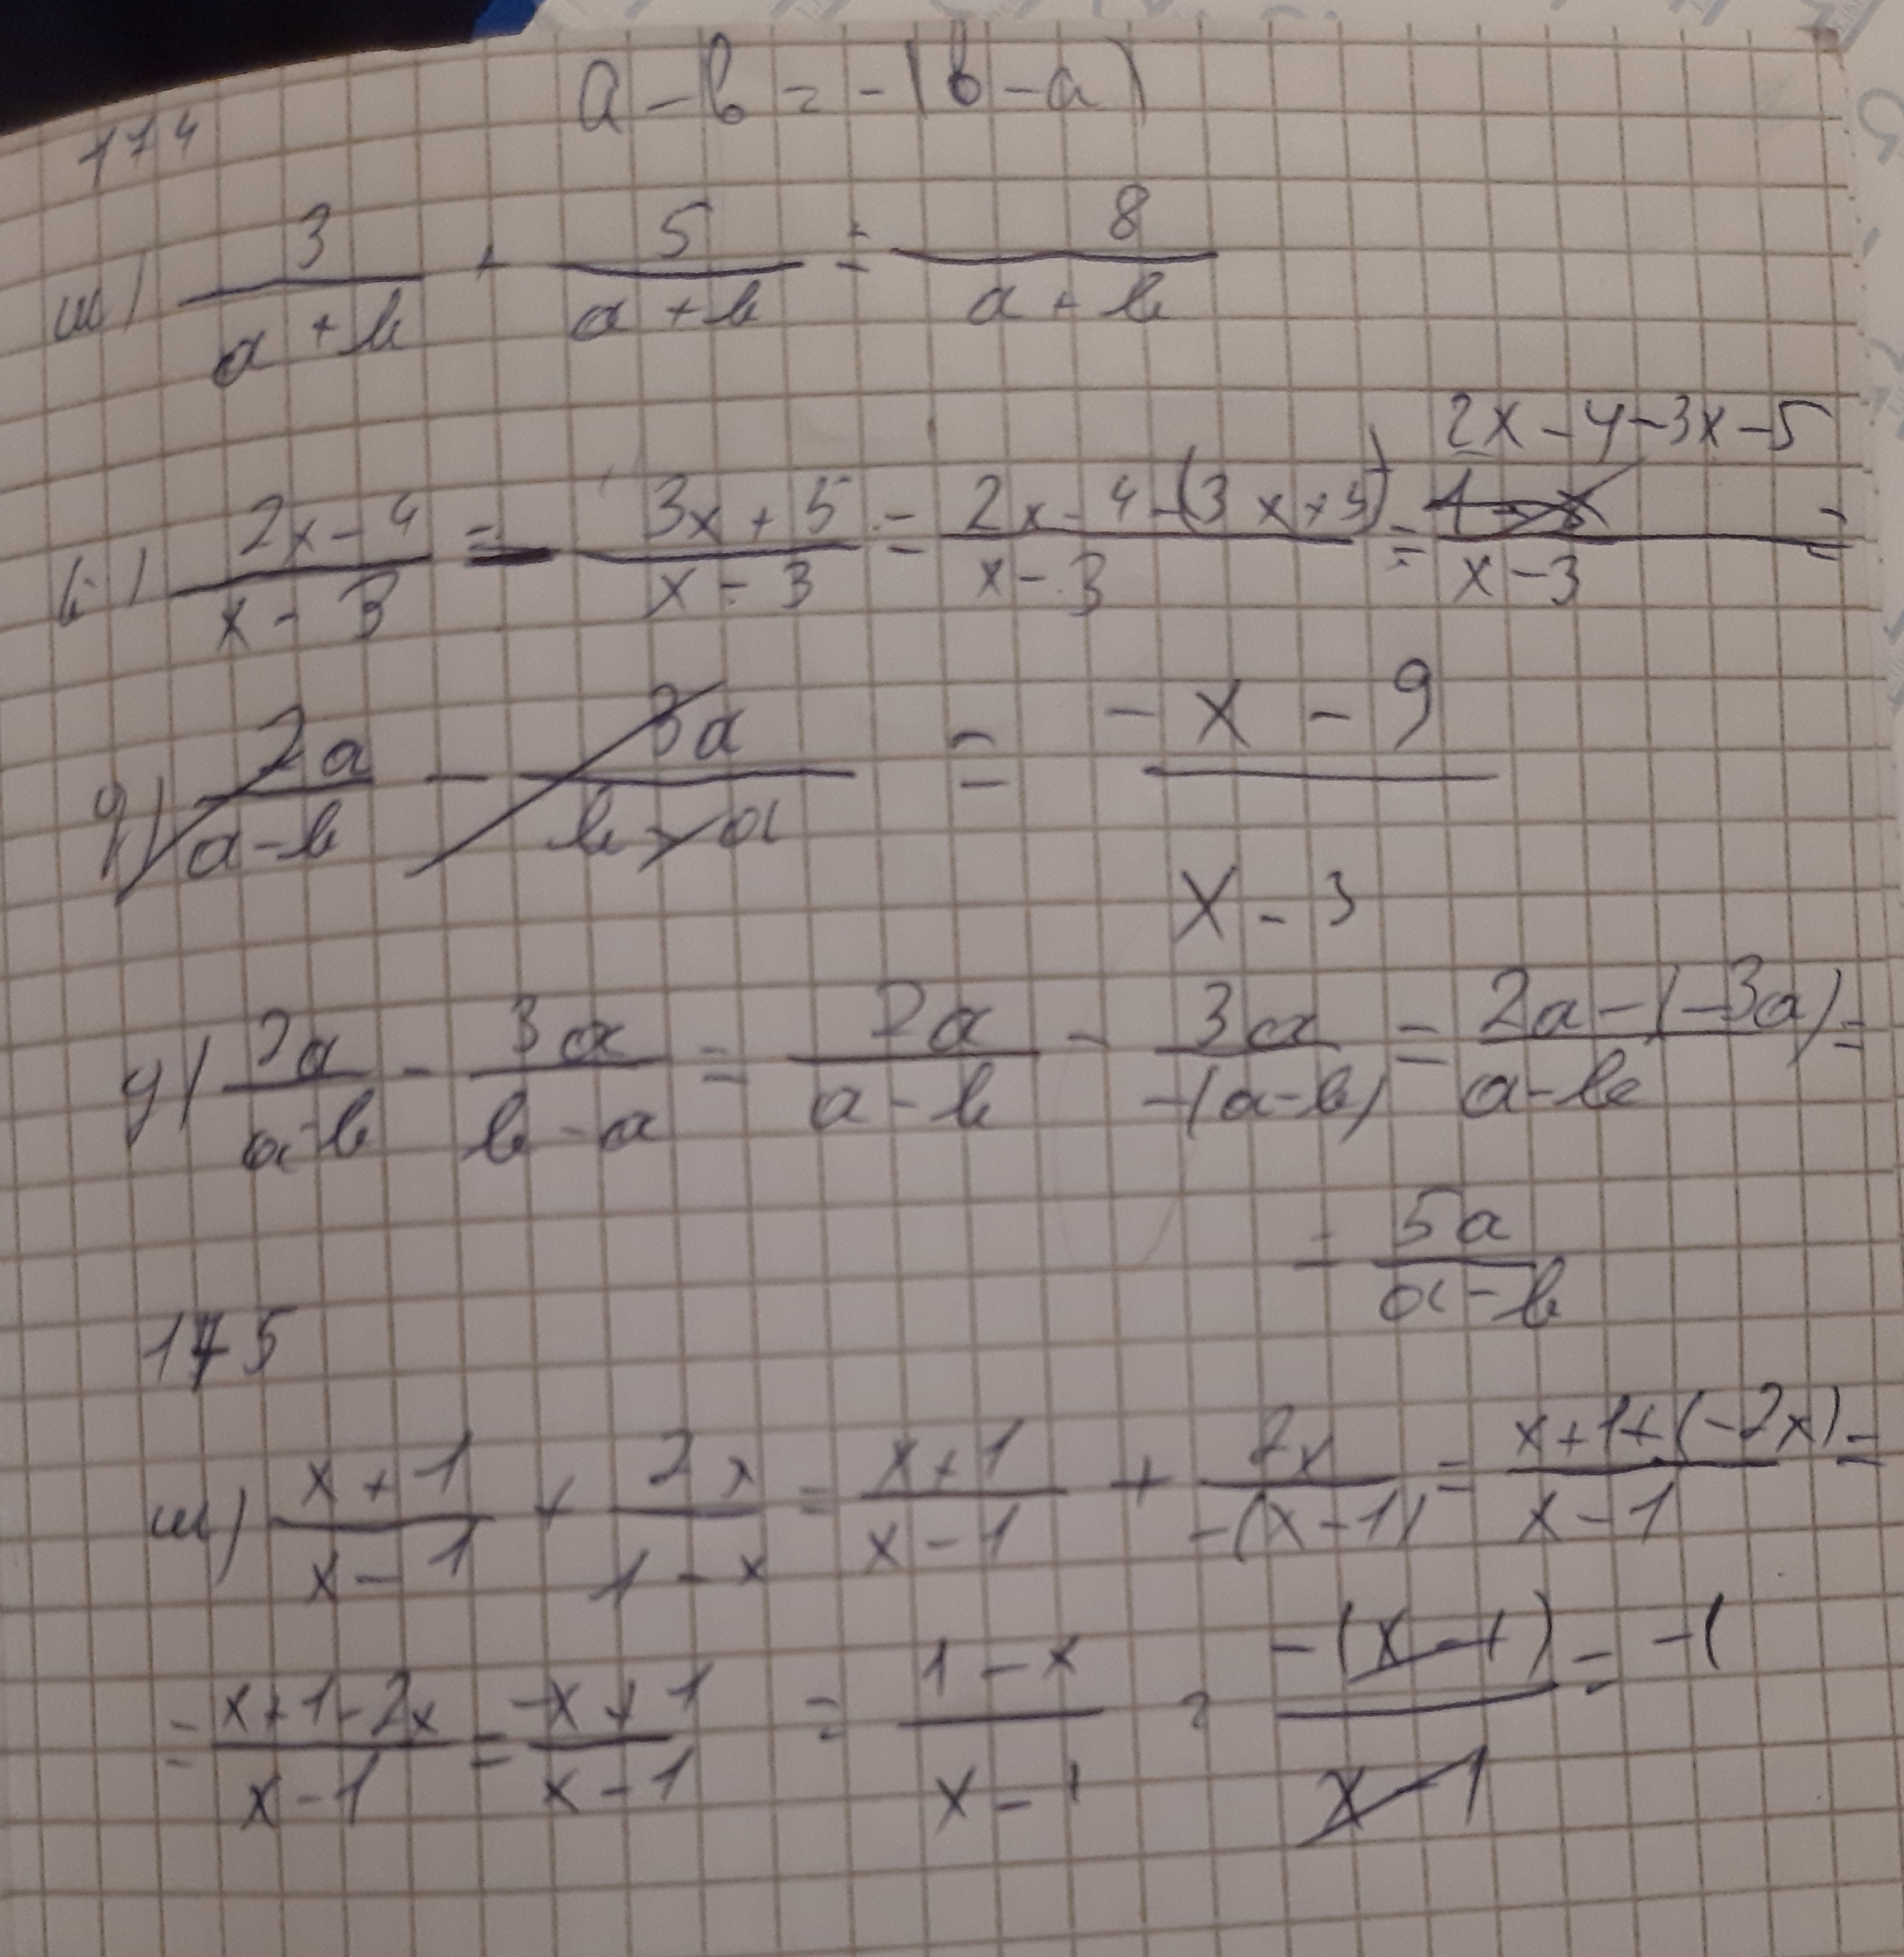 a - b = -(b - a)
174
ш) 3/(a + b) + 5/(a + b) = 8/(a + b)
(2x - 4)/(x - 3) - (3x + 5)/(x - 3) = (2x - 4 - (3x + 5))/(x - 3) = (2x - 4 - 3x - 5)/(x - 3) =
g) 2a/(a - b) - 3a/(b - a)
= (-x - 9)/(x - 3)
g) 2a/(a - b) - 3a/(b - a) = 2a/(a - b) - 3a/(-(a - b)) = (2a - (-3a))/(a - b) =
= 5a/(a - b)
175
ш) (x + 1)/(x - 1) + 2x/(1 - x) = (x + 1)/(x - 1) + 2x/(-(x - 1)) = (x + 1 + (-2x))/(x - 1) =
= (x + 1 - 2x)/(x - 1) = (-x + 1)/(x - 1) = (1 - x)/(x - 1) = -(x - 1)/(x - 1) = -1